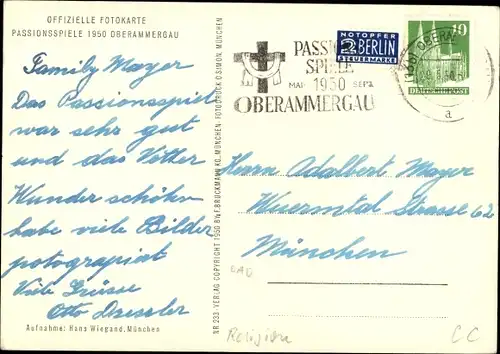 OFFIZELLE FOTOKARTE
PASSIONSSPIELE 1950 OBERAMMERGAU
Family Mayer
Das Passionsspiel
war sehr gut
und das Wetter
Wunder schön
habe viele Bilder
potograpiat
Viele Grüsse
Otto Dressler
Aufnahme: Hans Wiegand, München
NR 233 - VERLAG COPYRIGHT 1950 BY F. BRUCKMANN KG. MÜNCHEN FOTODRUCK O. SIMON, MÜNCHEN
PASSIONS
SPIELE
MAI 1950 SEPT.
OBERAMMERGAU
NOTOPFER
2 BERLIN
STEUERMARKE
10
DEUTSCHE POST
OBERAM
a
Herrn Adalbert Mayer
Wuermtal Strasse 62
München
BAD
Religion
CC